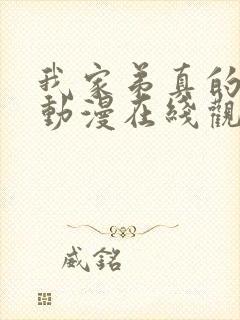 我家弟真的
動漫在綫觀
威銘